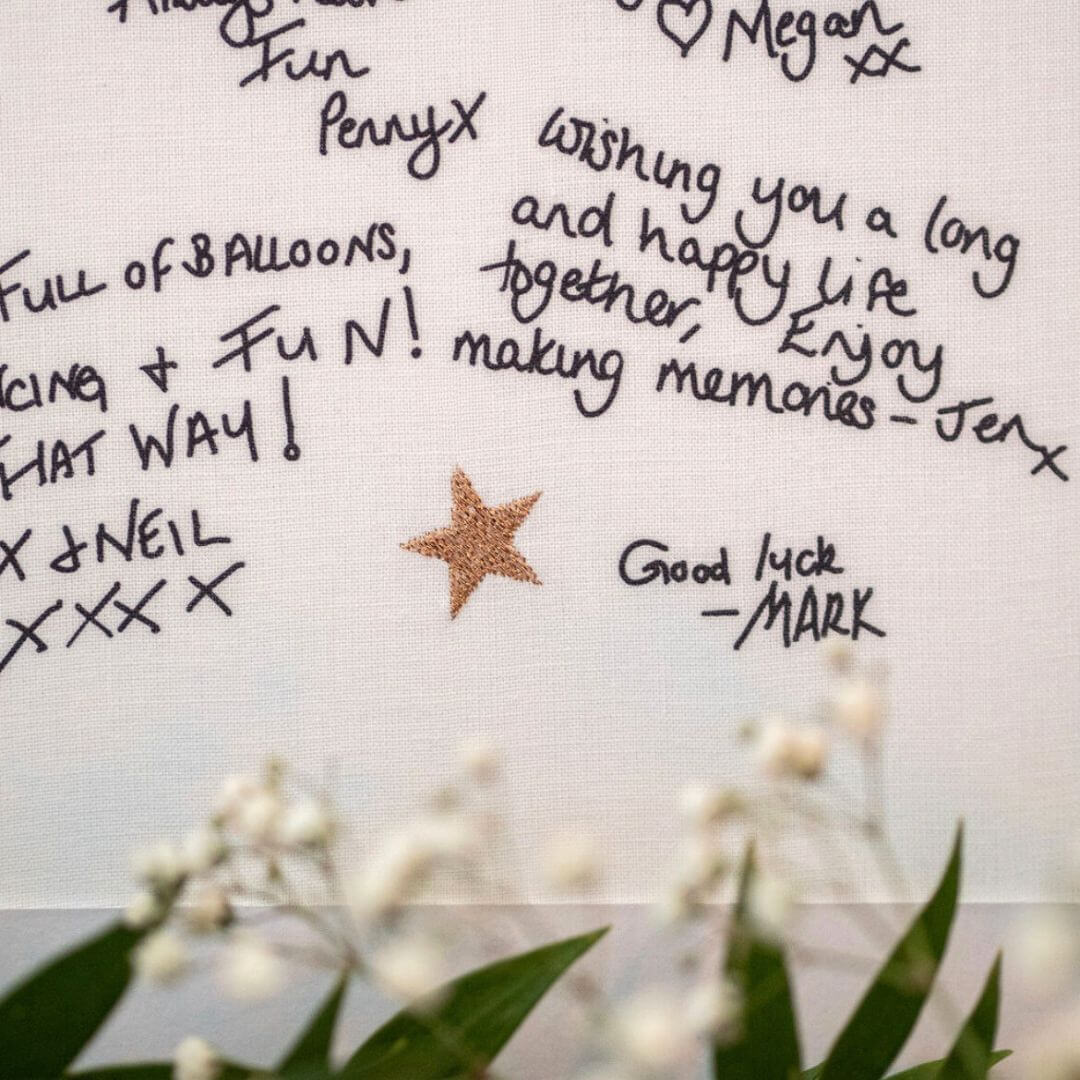 Always
Fun
Penny X
♡ Megan
xx
Wishing you a long
and happy life
together, Enjoy
making memories - Jen x
FULL OF BALLOONS,
& FUN!
WAY!
X & NEIL
XXX X
Good luck
- MARK